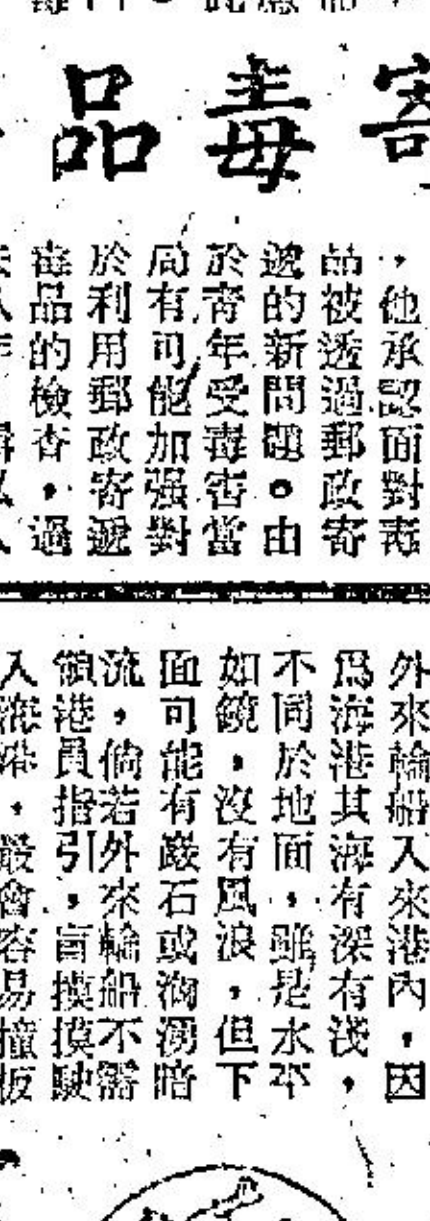 寄毒品
,他承認面對毒
品被透過郵政寄
遞的新問題。由
於青年受毒害當
局有可能加强對
於利用郵政寄遞
毒品的檢查,過
外來輪船入來港內,因
爲海港其海有深有淺,
不同於地面,雖是水平
如鏡,沒有風浪,但下
面可能有巖石或洶湧暗
流,倘若外來輪船不需
領港員指引,盲摸摸駛
入海港,最會容易撞板